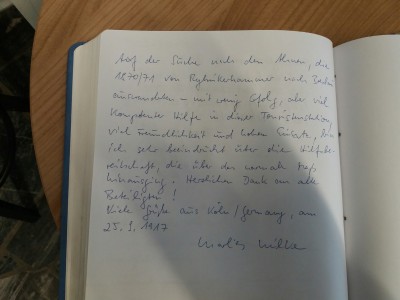 Auf der Suche nach den Ahnen, die
1870/71 von Rybnikerhammer nach
auswanderten – mit wenig Erfolg, aber viel
kompetenter Hilfe in dieser Touristenstation,
viel Freundlichkeit und hohem Einsatz, bin
ich sehr beeindruckt über die Hilfsbe-
reitschaft, die über das normale Maß
hinausging. Herzlichen Dank an alle
Beteiligten!
Viele Grüße aus Köln/Germany, am
25. 9. 1917